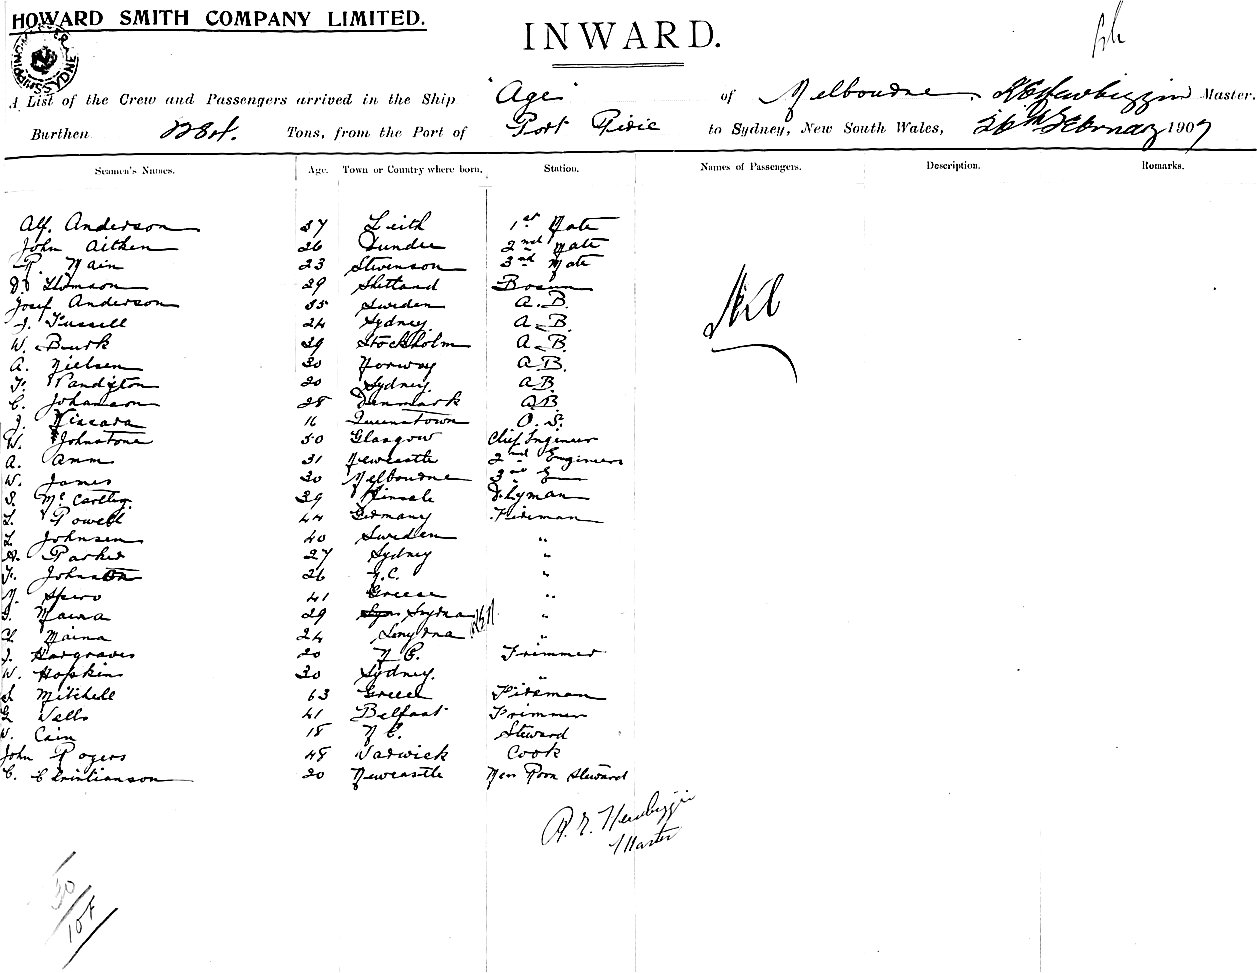 HOWARD SMITH COMPANY LIMITED.
INWARD.
A List of the Crew and Passengers arrived in the Ship "Age" of Melbourne, Master.
Burthen Tons, from the Port of Port Pirie to Sydney, New South Wales, 26th February 1907
Seamen's Names. Age. Town or Country where born. Station. Names of Passengers. Description. Remarks.
Alf. Anderson 37 Leith 1st Mate
John Aitken 26 Dundee 2nd Mate
R. Main 23 Stevenson 3rd Mate
Thomson 29 Shetland Bosun
Josef Anderson 35 Sweden A.B.
J. Fussell 24 Sydney. A.B.
W. Burk 39 Stockholm A.B.
A. Nielsen 30 Norway A.B.
20 Sydney. A.B.
C. Johanson 28 Denmark A.B.
J. 16 Queenstown O.S.
W. Johnstone 50 Glasgow Chief Engineer
A. Amm 31 Newcastle 2nd Engineer
W. James 30 Melbourne 3rd E
McCarthy 39 Kinsale
Powell 44 Germany Fireman
Johnsen 40 Sweden "
Parker 27 Sydney "
Johnston 26 "
Spiro 41 Greece "
Maina 29 "
Maina 24 "
J. Hargraves 20 N.C. Trimmer
W. Hopkin 30 Sydney. "
Mitchell 63 Greece Fireman
Wells 41 Belfast Trimmer
Cain 18 N.C. Steward
John Rogers 48 Warwick Cook
C. Christianson 20 Newcastle Mess Room Steward
Nil
Newbiggin
Master
30/